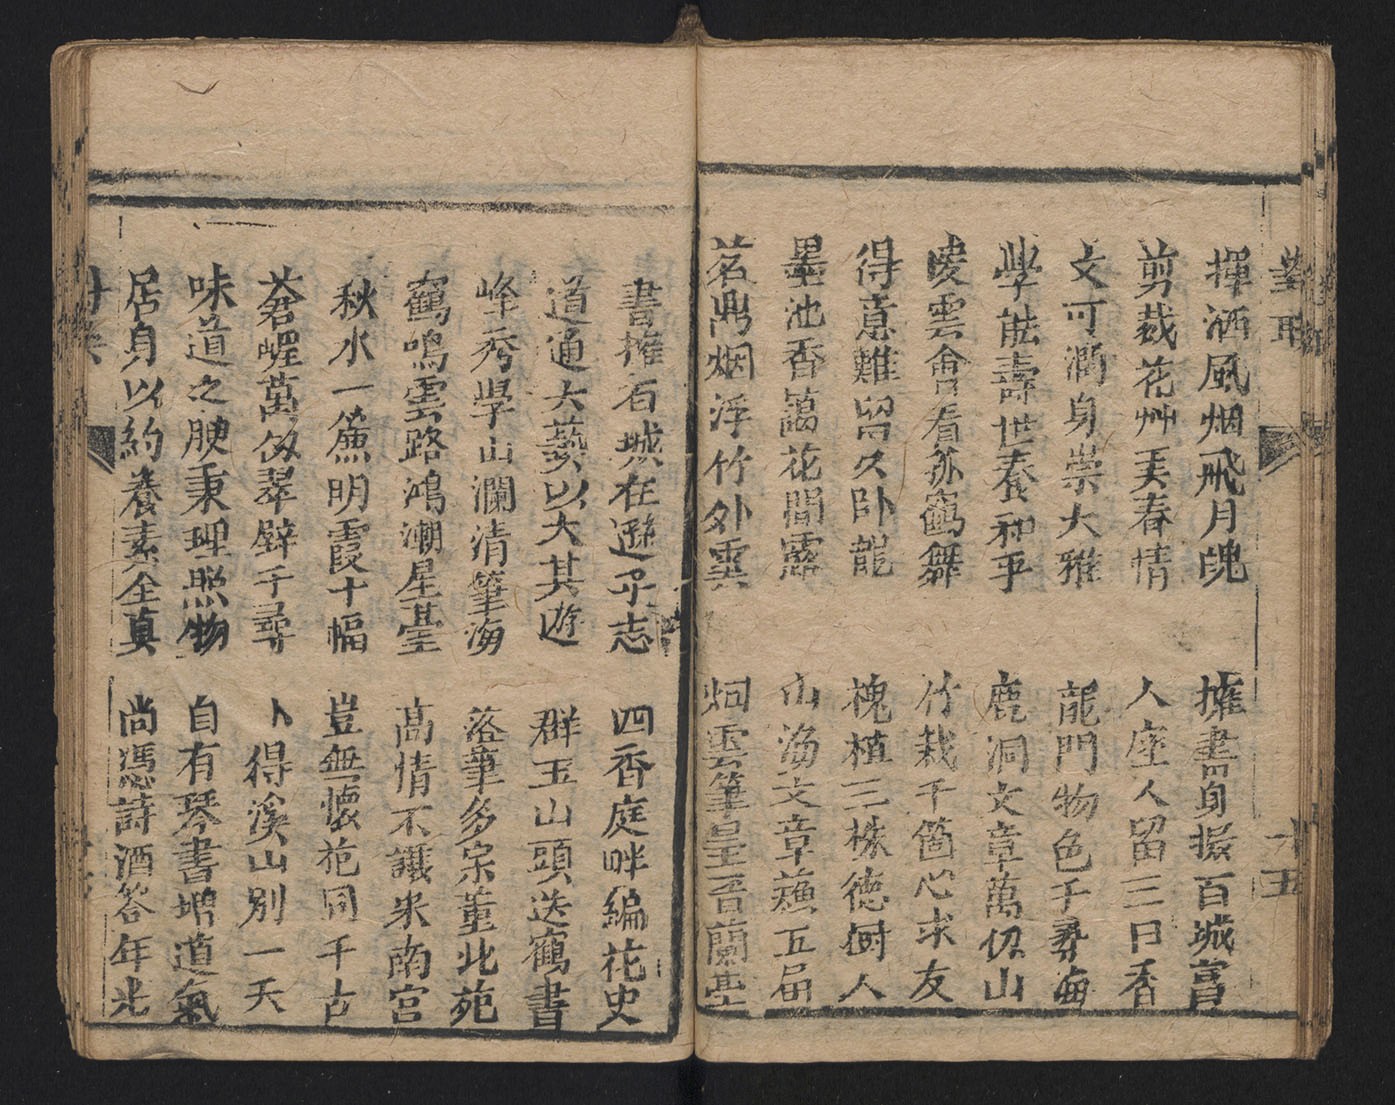 揮洒風烟飛月魄
擁書身擬百城富
剪裁花艸美春情
人座人留三日香
文可潤身崇大雅
龍門物色千尋海
學能壽世養和平
鹿洞文章萬仭山
凌雲會看孤鶴舞
竹栽千箇心求友
得意難留久卧龍
槐植三株德樹人
墨池香藹花間露
山海文章蘓五届
茗鼎烟浮竹外雲
烟雲筆墨吾蘭基
書擁石城在遜乎志
四香庭畔編花史
道通大藝以大其遊
群玉山頭送鶴書
峰秀學山瀾清筆海
落筆多宗董北苑
鶴鳴雲路鴻潮星臺
高情不讓米南宮
秋水一簾明霞十幅
豈無懷葩同千古
蒼崕萬仭翠壁千尋
卜得溪山別一天
味道之腴秉理照物
自有琴書增道氣
居身以約養素全真
尚馮詩酒答年光